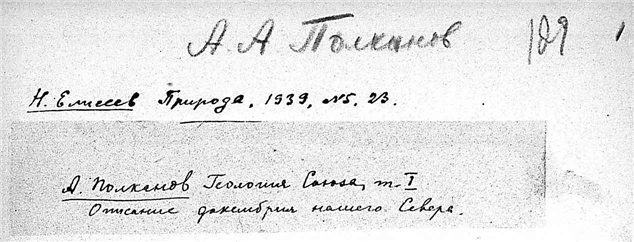 А. А Полканов 189
Н. Елисеев Природа, 1939, №5, 23.
А. Полканов Геология Союза, т. I
Описание докембрия нашего Севера.